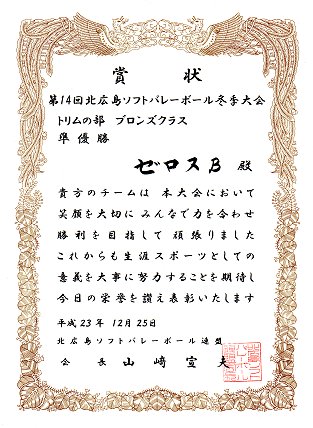 賞状
第14回北広島ソフトバレーボール冬季大会
トリムの部 ブロンズクラス
準優勝
ゼロスB 殿
貴方のチームは 本大会において
笑顔を大切に みんなで力を合わせ
勝利を目指して 頑張りました
これからも生涯スポーツとしての
意義を大事に努力することを期待し
今日の栄誉を讃え表彰いたします
平成23年 12月25日
北広島ソフトバレーボール連盟
会長 山﨑宣夫